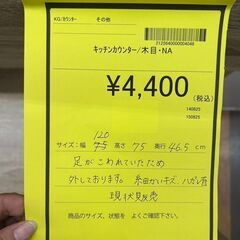 KG/カウンター その他
2123640000004048
キッチンカウンター/木目・NA
¥4,400
(税込)
140825
150825
120
サイズ：幅 75 高さ 75 奥行 46.5 cm
足がこわれていたため
外しております。細かいキズ、ハガレ有
現状販売
商品のサイズ、状態を よくご確認下さい。